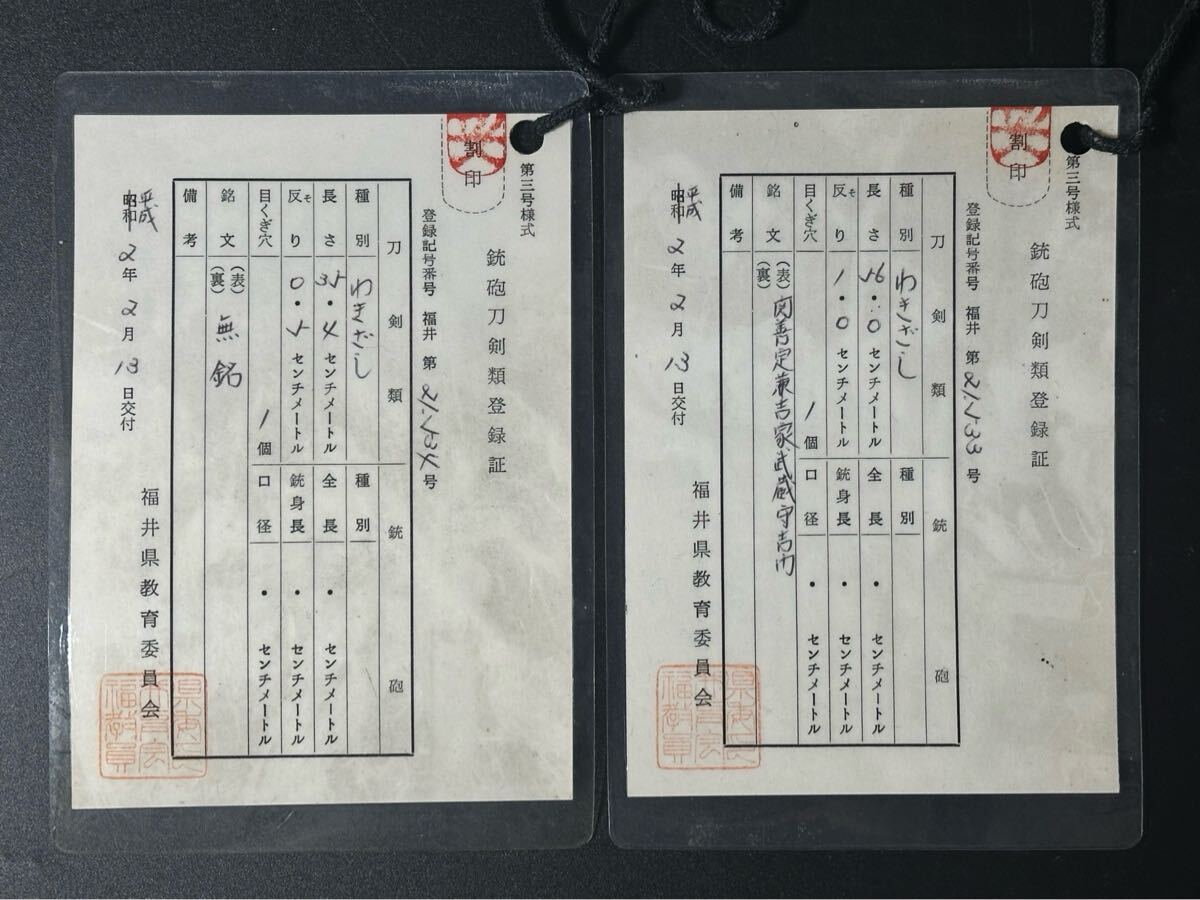 第三号様式
割印
銃砲刀剣類登録証
登録記号番号 福井 第21533号
刀剣類 銃砲
種別 わきざし 種別
長さ 56.0センチメートル 全長 ・ センチメートル
反り 1.0センチメートル 銃身長 ・ センチメートル
そ
目くぎ穴 1個 口径 ・ センチメートル
銘文 (表) 関善定兼吉家武蔵守吉門
(裏)
備考
平成
昭和 2年2月13日交付
福井県教育委員会
第三号様式
割印
銃砲刀剣類登録証
登録記号番号 福井 第21534号
刀剣類 銃砲
種別 わきざし 種別
長さ 35.4センチメートル 全長 ・ センチメートル
反り 0.5センチメートル 銃身長 ・ センチメートル
そ
目くぎ穴 1個 口径 ・ センチメートル
銘文 (表) 無銘
(裏)
備考
平成
昭和 2年2月13日交付
福井県教育委員会